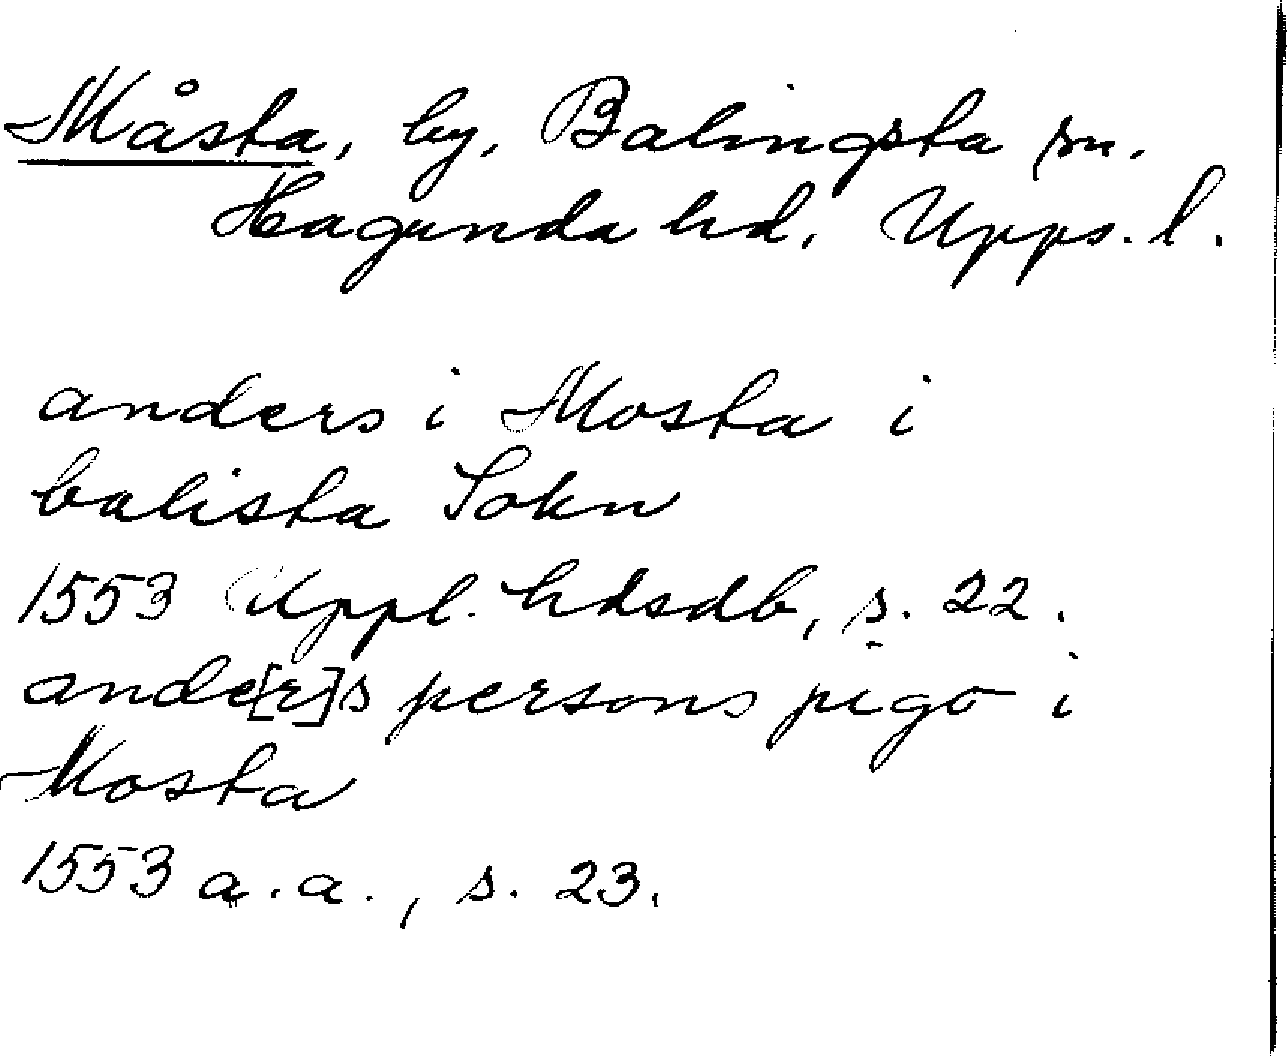 Måsta, by, Balingsta sn.
Hagunda hd, Upps. l.
anders i Mosta i
balista Sokn
1553 Uppl. hdsdb, s. 22.
ande[r]s persons pigo i
Mosta
1553 a.a., s. 23.